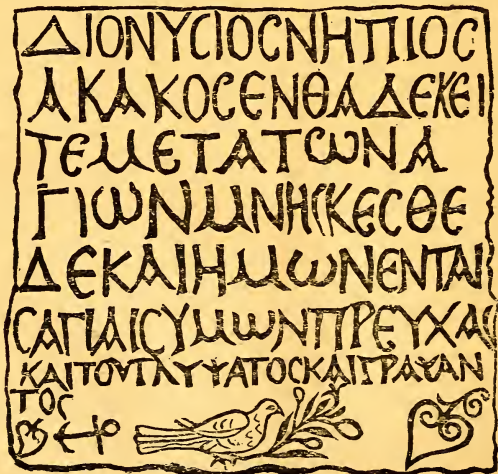 ΔΙΟΝΥCΙΟCΝΗΠΙΟC
ΑΚΑΚΟCΕΝΘΑΔΕΚΕΙ
ΤΕΜΕΤΑΤωΝΑ
ΓΙωΝΜΝΗCΚΕCΘΕ
ΔΕΚΑΙΗΜωΝΕΝΤΑΙ
CΑΓΙΑΙCΥΜωΝΠΡΕΥΧΑC
ΚΑΙΤΟΥΓΛΥΨΑΤΟCΚΑΙΓΡΑΨΑΝ
ΤΟC